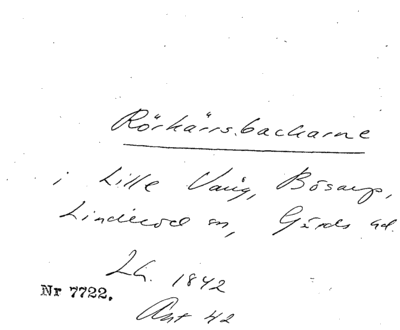 Rörkärrsbackarne
i Lille Vång, Bösarp,
Linderöd sn, Gärds hd.
Lh. 1842
Nr 7722.
Ant 42